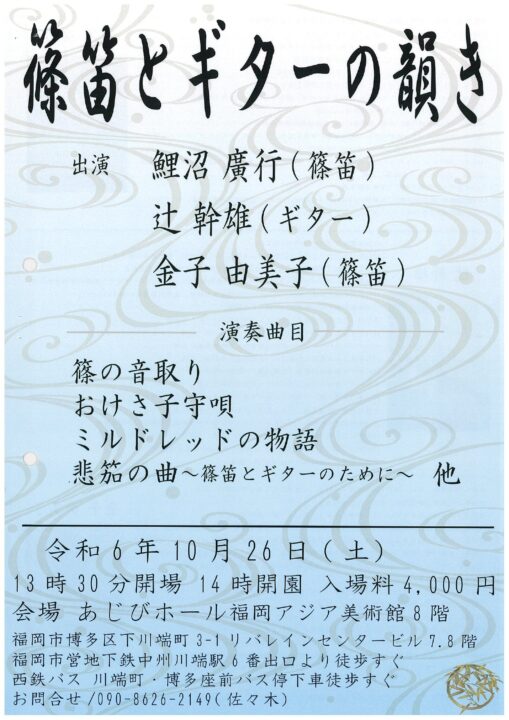 篠笛とギターの韻き
出演 鯉沼 廣行(篠笛)
辻 幹雄(ギター)
金子 由美子(篠笛)
演奏曲目
篠の音取り
おけさ子守唄
ミルドレッドの物語
悲笳の曲~篠笛とギターのために~ 他
令和6年10月26日(土)
13時30分開場 14時開園 入場料4,000円
会場 あじびホール福岡アジア美術館8階
福岡市博多区下川端町3-1リバレインセンタービル7.8階
福岡市営地下鉄中州川端駅6番出口より徒歩すぐ
西鉄バス 川端町・博多座前バス停下車徒歩すぐ
お問合せ/090-8626-2149(佐々木)